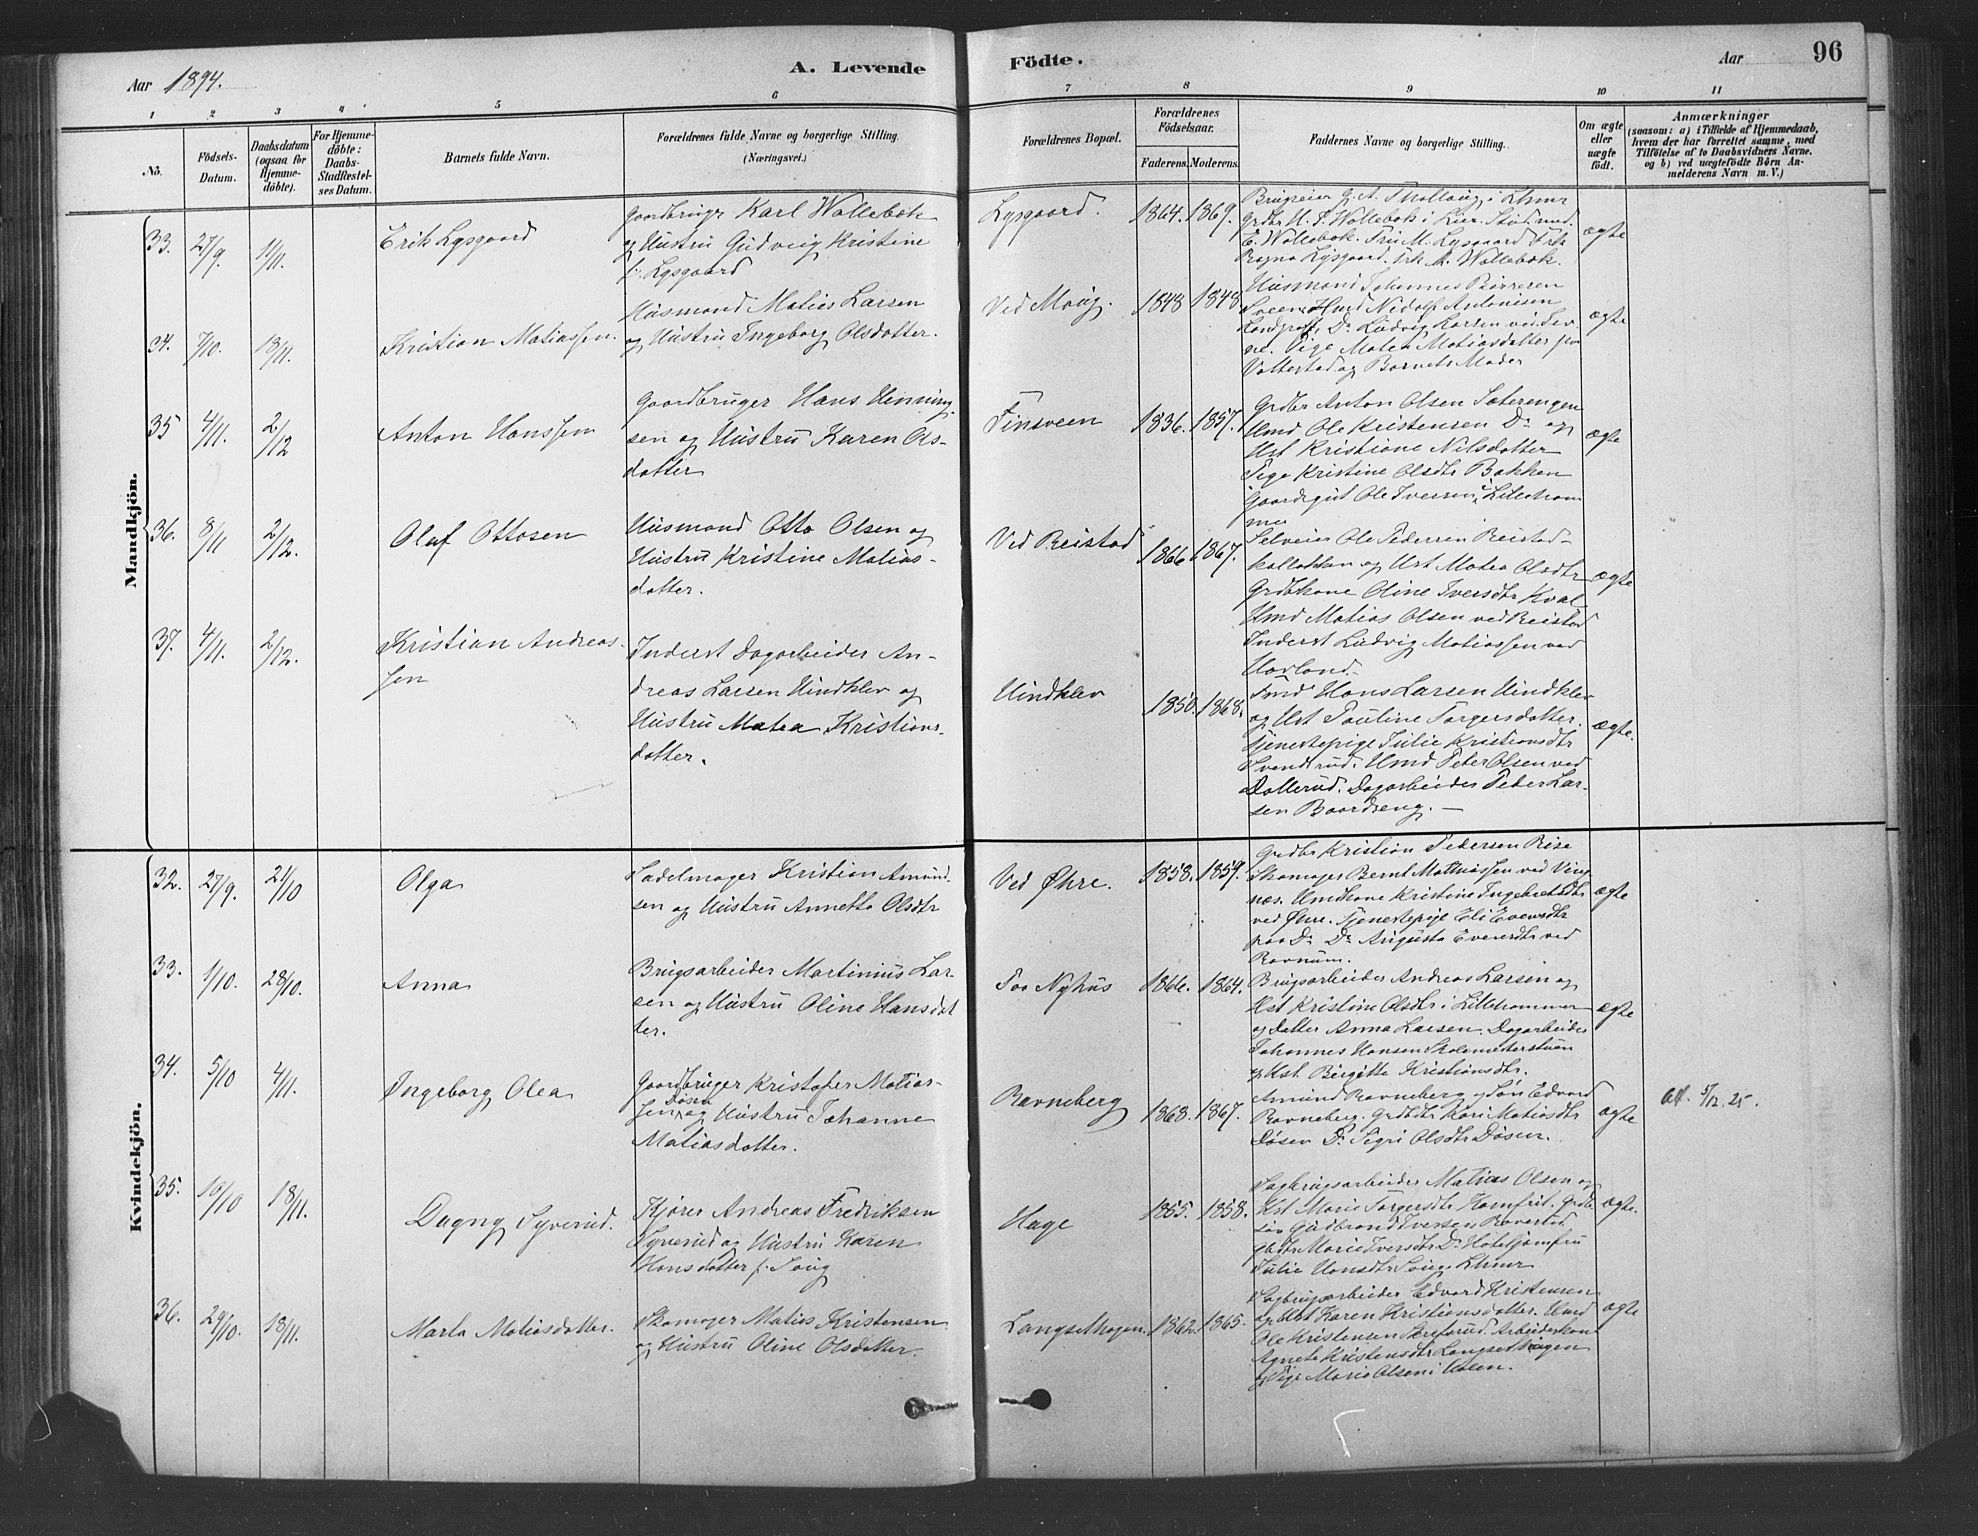 Aar 1894.
A. Levende
Födte.
Aar
96
1 2 3 4 5 6 7 8 9 10 11
No.
Födsels-Datum.
Daabsdatum (ogsaa for Hjemme-döbte).
For Hjemme-döbte: Daabs-Stadfæstel-ses Datum.
Barnets fulde Navn.
Forældrenes fulde Navne og borgerlige Stilling. (Næringsvei.)
Forældrenes Bopæl.
Forældrenes Födselsaar.
Faderens. Moderens.
Faddernes Navne og borgerlige Stilling.
Om ægte eller uægte födt.
Anmærkninger
(saasom: a) i Tilfælde af Hjemmedaab,
hvem der har forrettet samme, med
Tilföielse af to Daabsvidners Navne.
og b) ved uægtefödte Börn An-
melderens Navn m. V.)
Mandkjön.
33. 27/9 11/11. Erik Lysgaard
Gaardbruger Karl Wollebæk
og Hustru Gudveig Kristine
f. Lysgaard
Lysgaard. 1864. 1869.
Brugseier G. A. Thallaug i Lhmr
Grdbr H. S. Wollebæk i Lier. Stud. med.
E. Wollebæk. Fru M. Lysgaard Frk
Ragna Lysgaard. Frk M. Wollebæk.
ægte
34. 7/10. 18/11. Kristian Matiassen.
Husmand Matias Larsen
og Hustru Ingeborg Olsdatter.
Ved Moug. 1848 1848
Husmand Johannes Børresen
Sveen Hmd Nidolf Antonisen
Do Ludvig Larsen ved
Pige Matea Matiasdatter
og Barnets Moder
ægte
35 4/11. 2/12 Anton Hanssen
Gaardbruger Hans Henning-
sen og Hustru Karen Ols-
datter
Finsveen 1836. 1857.
Grdbr Anton Olsen Sæterengen
Hmd Ole Kristensen Do og
Hst Kristiane Nilsdatter
Pige Kristine Olsdtr Bakken
Gaardsgut Ole Iversen i Lilleham
mer
ægte
36. 8/11 2/12. Olaf Ottosen
Husmand Otto Olsen og
Hustru Kristine Matias-
datter.
Ved Reistad 1866 1867.
Selveier Ole Pedersen Reistad-
bakken og Hst Matea Olsdtr
Grdbkone Oline Iversdtr Kval
Hmd Matias Olsen ved Reistad
Inderst Ludvig Matiassen ved
Havland.
ægte
37. 4/11. 2/12. Kristian Andreas-
sen
Inderst Dagarbeider An-
dreas Larsen Hindklev og
Hustru Matea Kristians-
datter.
Hindklev 1850. 1868.
Smd Hans Larsen Hindklev
og Hst Pauline Torgersdatter.
Tjenestepige Julie Kristiansdtr
Svendsrud. Hmd Peter Olsen ved
Dallerud. Dagarbeider Peder Lar-
sen Baardseng. —
ægte.
Kvindekjön.
32. 27/9. 21/10 Olga
Sadelmager Kristian Amund-
sen og Hustru Annette Olsdtr
Ved Øhre. 1858. 1859.
Grdbr Kristian Pedersen Rise
Skomager Bernt Mathiassen ved Ving-
næs. Hmdkone Kristine Ingebretsdtr
ved Øhre. Tjenestepige Eli Evensdtr
paa Do Do Augusta Evensdtr ved
Ravnum.
ægte
33. 1/10. 28/10. Anna
Brugsarbeider Martinius Lar-
sen og Hustru Oline Hansdat
ter.
Paa Nyhus 1866. 1864.
Brugsarbeider Andreas Larsen og
Hst Kristine Olsdtr i Lillehammer
og Datter Anna Larsen. Dagarbeider
Johannes Hansen Skolemesterstuen
og Hst Birgitte Kristiansdtr.
ægte
34. 5/10 4/11. Ingeborg Olea
Gaardbruger Kristofer Matias-
sen Døsen og Hustru Johanne
Matiasdatter.
Ravneberg 1868. 1867.
Amund Ravneberg og Søn Edvard
Ravneberg. Grdbdtr Kari Matiasdtr
Døsen Do Sigri Olsdtr Døsen.
ægte
att. 5/12. 25.
35. 10/10 18/11. Dagny Syverud.
Kjører Andreas Fredriksen
Syverud og Hustru Karen
Hansdatter f. Saug
Hage 1855. 1858.
Sagbrugsarbeider Matias Olsen og
Hst Marie Torgersdtr Grdbr
søn Gudbrand Iversen
Marie Iversdtr Do Hoteljomfru
Julie Hansdtr Saug, Lhmr
ægte.
36. 29/10. 18/11. Marta Matiasdatter.
Skomager Matias Kristensen
og Hustru Oline Olsdatter.
Langsethagen. 1862. 1865.
Sagbrugsarbeider Edvard Kristensen
og Hst Karen Kristiansdatter. Hmd
Ole Kristensen Skrefsrud. Arbeiderkone
Agnete Kristensdtr Langsethagen
og Pige Marie Olsen i Holen.
ægte